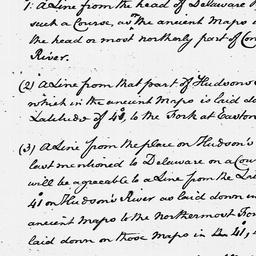 1. A Line from the head of Delaware
such a Course, as the ancient Maps
the head or most northerly part of
River.
(2) A Line from that part of Hudsons
which in the ancient Maps is laid do
Latitude of 41, to the Fork at Easton
(3) A Line from the place on Hudson's
last mentioned to Delaware on a Cou
will be agreeable to a Line from the La
41 on Hudson's River as laid down in
ancient Maps to the Northermost For
laid down on those Maps in 41°, 4